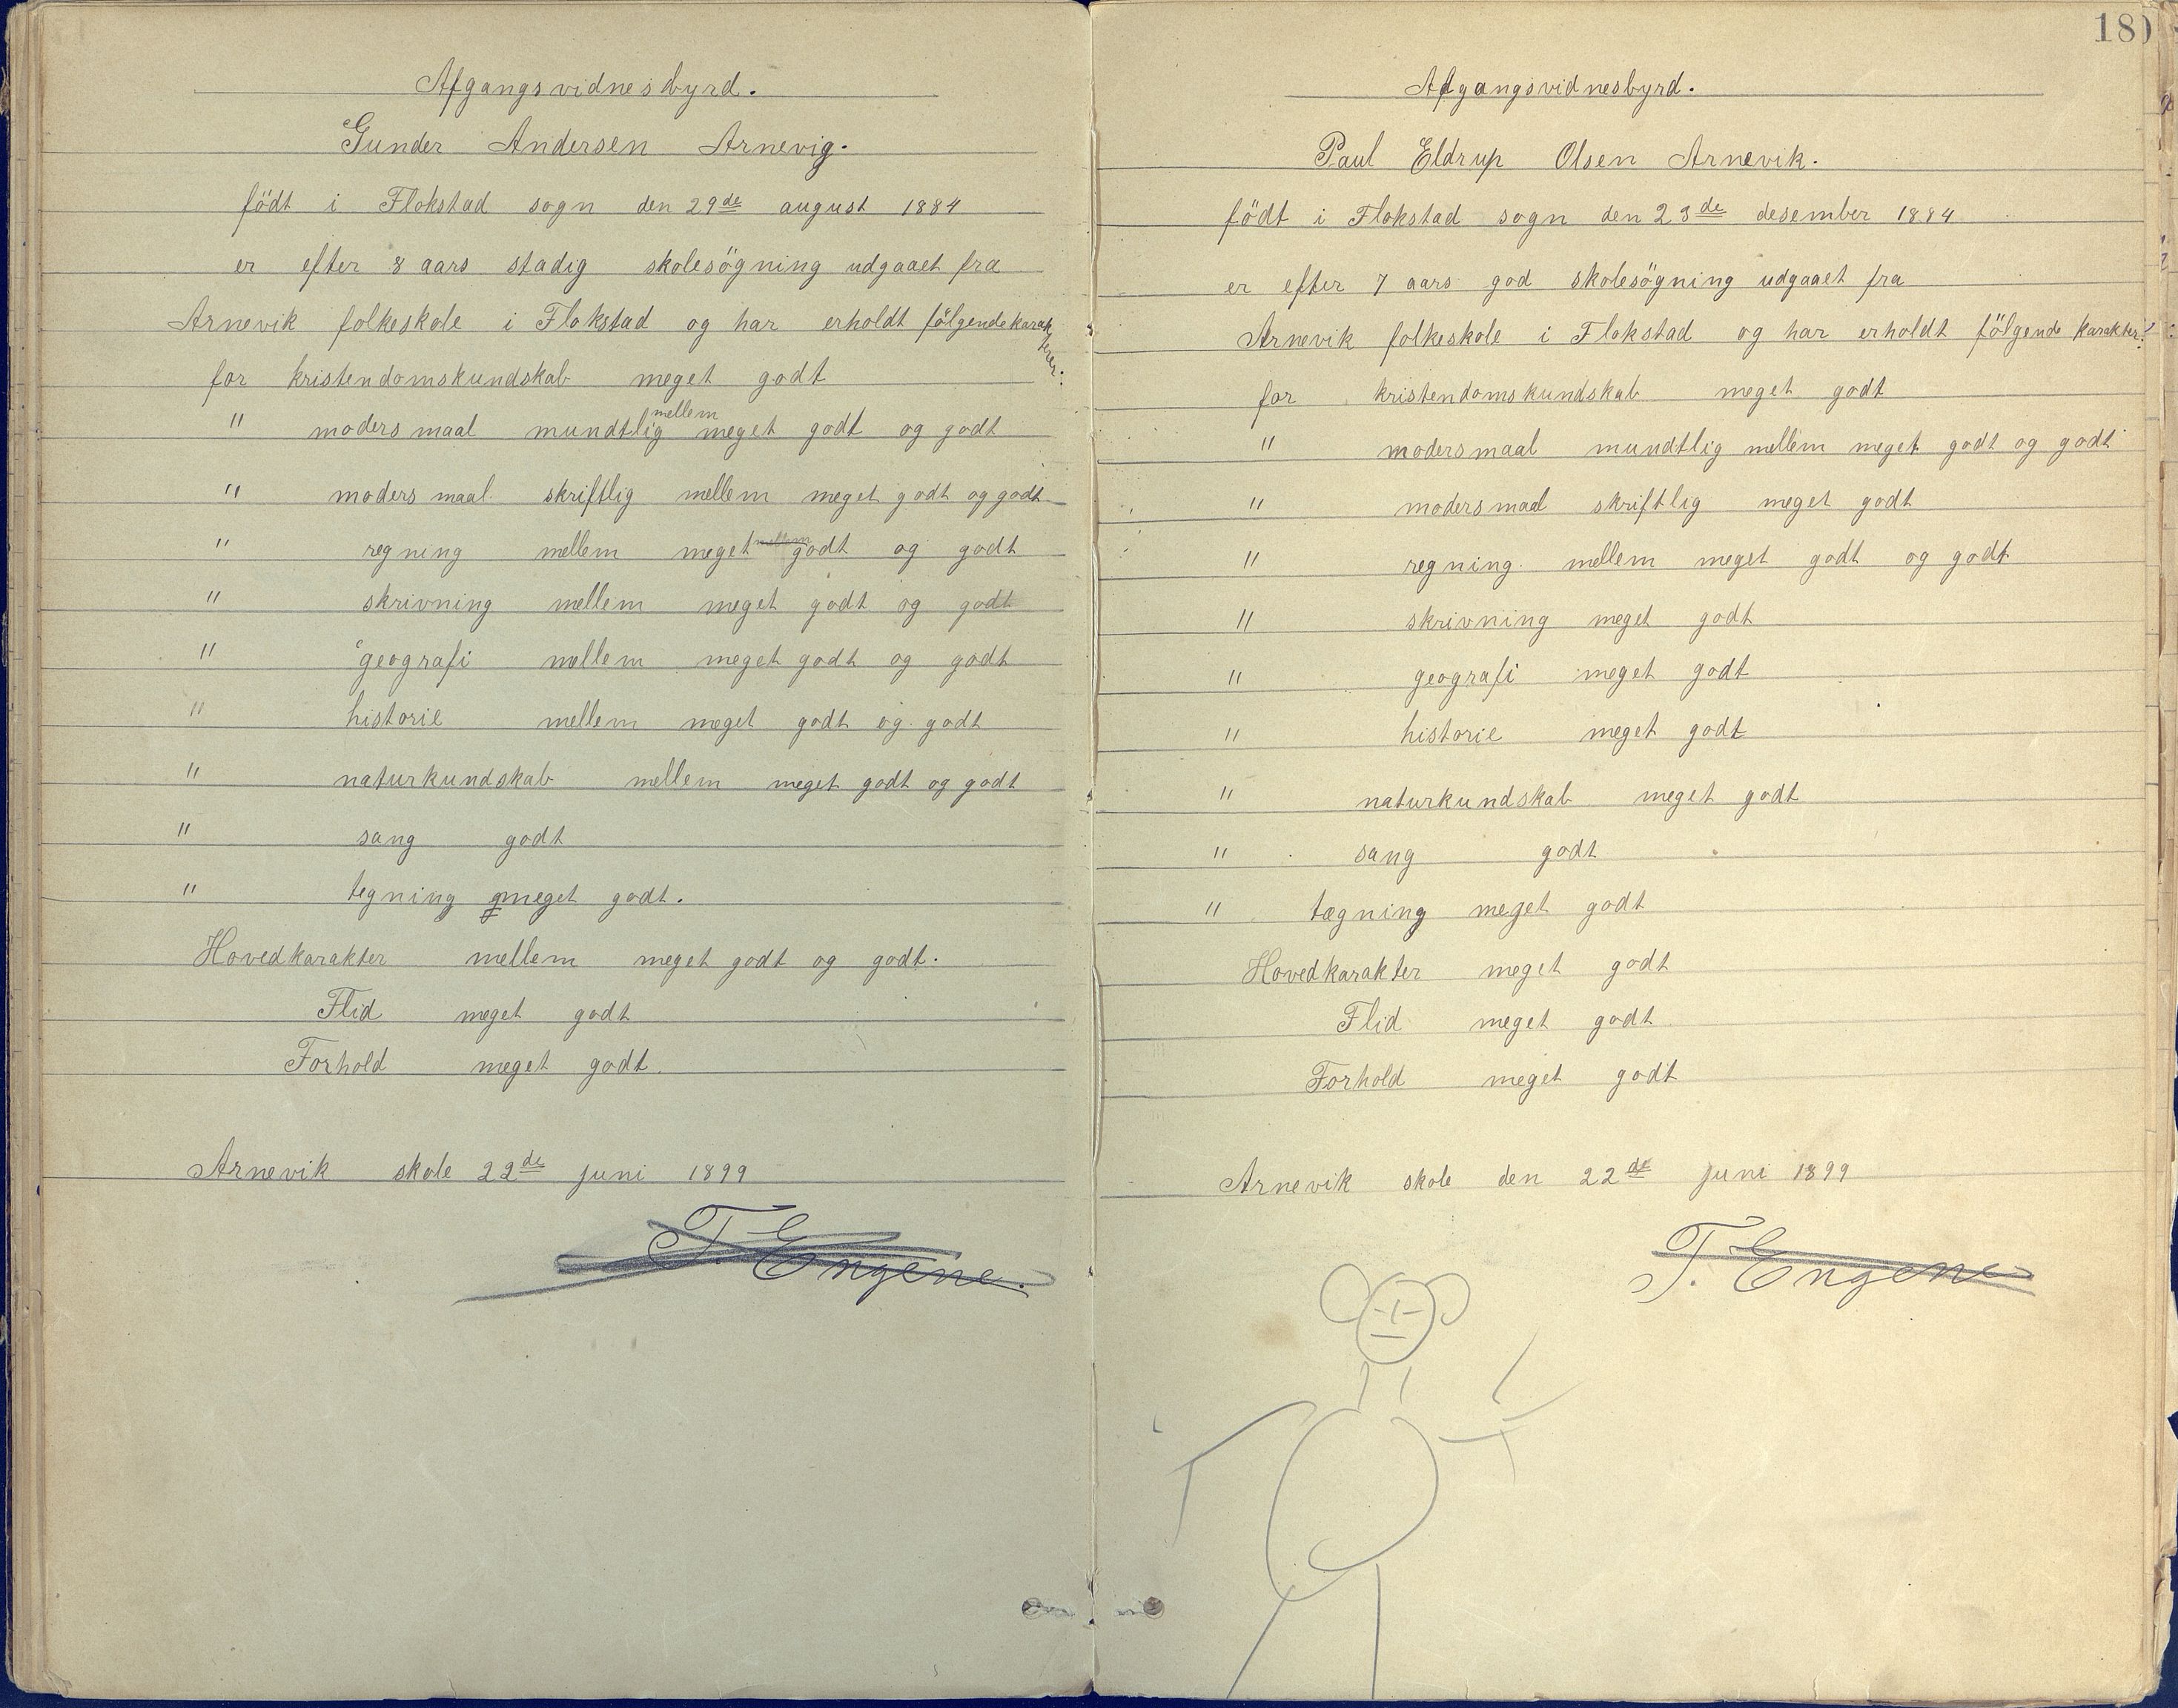 Afgangsvidnesbyrd.
Gunder Andersen Arnevig.
födt i Flokstad sogn den 29de august 1884
er efter 8 aars stadig skolesögning udgaaet fra
Arnevik folkeskole i Flokstad og har erholdt fölgende karakterer:
for kristendomskundskab meget godt
" modersmaal mundtlig mellem meget godt og godt
" modersmaal skriftlig mellem meget godt og godt
" regning mellem meget mellem godt og godt
" skrivning mellem meget godt og godt
" geografi mellem meget godt og godt
" historie mellem meget godt og godt
" naturkundskab mellem meget godt og godt
" sang godt
" tegning g meget godt.
Hovedkarakter mellem meget godt og godt.
Flid meget godt
Forhold meget godt.
Arnevik skole 22de juni 1899
T. Engene.
180
Afgangsvidnesbyrd.
Paul Eldrup Olsen Arnevik.
födt i Flokstad sogn den 23de desember 1884
er efter 7 aars god skolesögning udgaaet fra
Arnevik folkeskole i Flokstad og har erholdt fölgende karakter:
for kristendomskundskab meget godt
" modersmaal mundtlig mellem meget godt og godt
" modersmaal skriftlig meget godt
" regning mellem meget godt og godt
" skrivning meget godt
" geografi meget godt
" historie meget godt
" naturkundskab meget godt
" sang godt
" tægning meget godt
Hovedkarakter meget godt
Flid meget godt
Forhold meget godt
Arnevik skole den 22de juni 1899
T. Engene